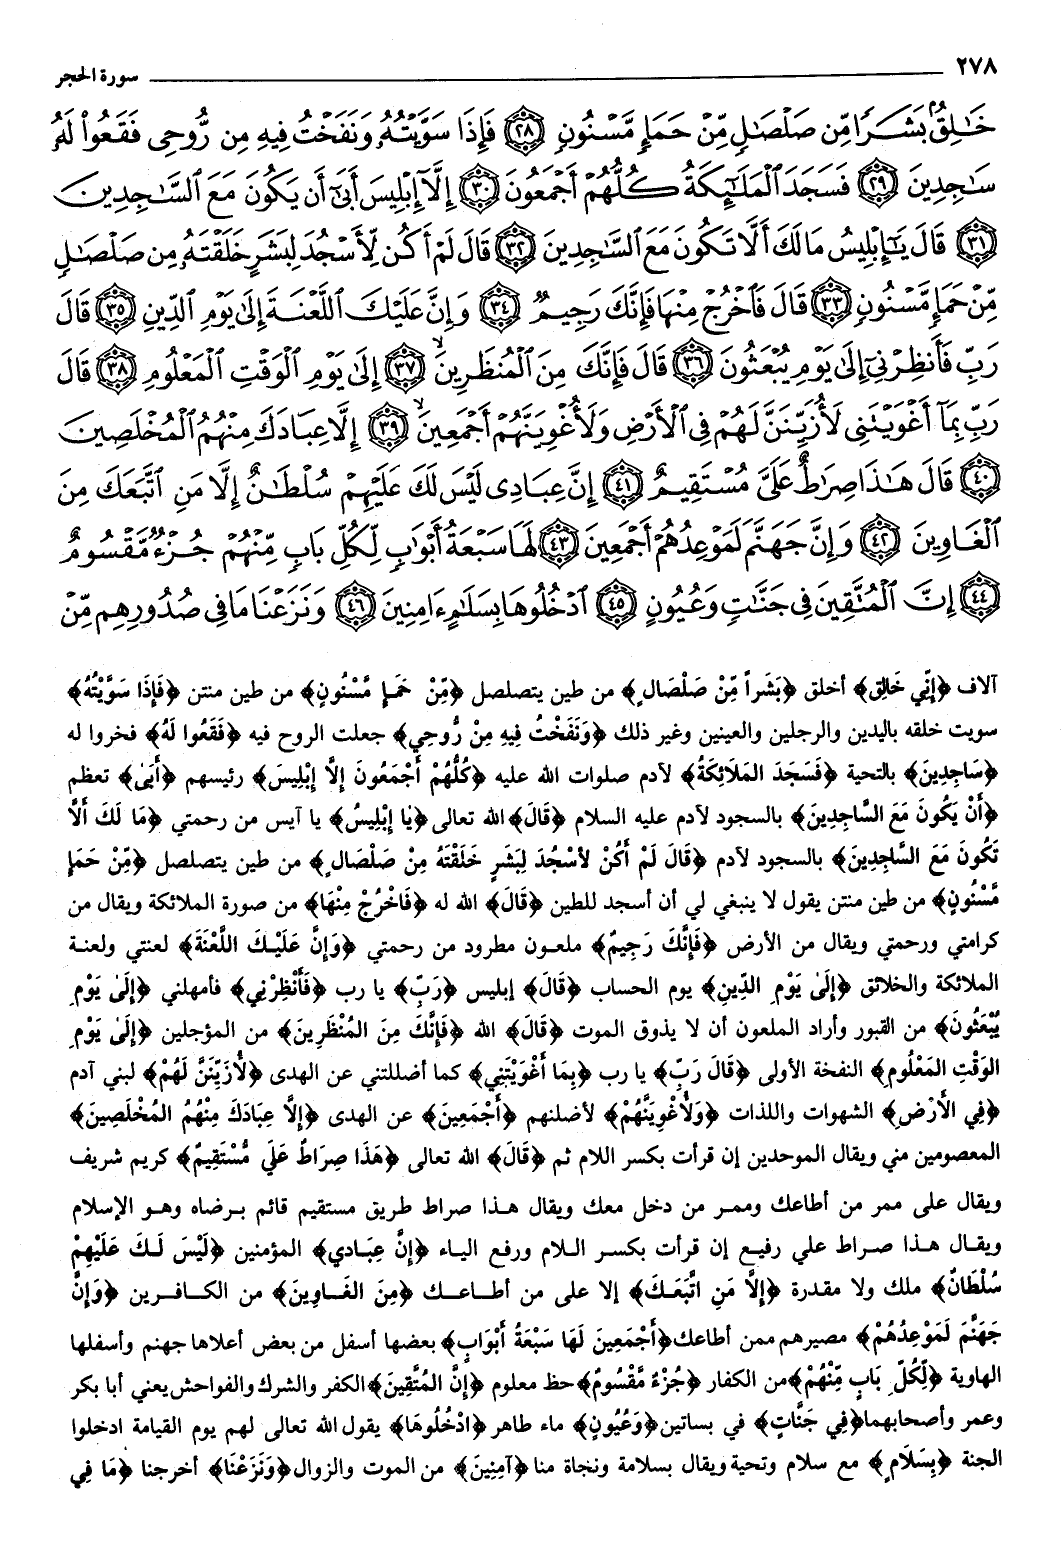 ٢٧٨ سورة الحجر
خَٰلِقُۢ بَشَرًا مِّن صَلْصَٰلٍ مِّنْ حَمَإٍ مَّسْنُونٍ ﴿٢٨﴾ فَإِذَا سَوَّيْتُهُۥ وَنَفَخْتُ فِيهِ مِن رُّوحِى فَقَعُوا۟ لَهُۥ
سَٰجِدِينَ ﴿٢٩﴾ فَسَجَدَ ٱلْمَلَٰٓئِكَةُ كُلُّهُمْ أَجْمَعُونَ ﴿٣٠﴾ إِلَّآ إِبْلِيسَ أَبَىٰٓ أَن يَكُونَ مَعَ ٱلسَّٰجِدِينَ
﴿٣١﴾ قَالَ يَٰٓإِبْلِيسُ مَا لَكَ أَلَّا تَكُونَ مَعَ ٱلسَّٰجِدِينَ ﴿٣٢﴾ قَالَ لَمْ أَكُن لِّأَسْجُدَ لِبَشَرٍ خَلَقْتَهُۥ مِن صَلْصَٰلٍ
مِّنْ حَمَإٍ مَّسْنُونٍ ﴿٣٣﴾ قَالَ فَٱخْرُجْ مِنْهَا فَإِنَّكَ رَجِيمٌ ﴿٣٤﴾ وَإِنَّ عَلَيْكَ ٱللَّعْنَةَ إِلَىٰ يَوْمِ ٱلدِّينِ ﴿٣٥﴾ قَالَ
رَبِّ فَأَنظِرْنِىٓ إِلَىٰ يَوْمِ يُبْعَثُونَ ﴿٣٦﴾ قَالَ فَإِنَّكَ مِنَ ٱلْمُنظَرِينَ ﴿٣٧﴾ إِلَىٰ يَوْمِ ٱلْوَقْتِ ٱلْمَعْلُومِ ﴿٣٨﴾ قَالَ
رَبِّ بِمَآ أَغْوَيْتَنِى لَأُزَيِّنَنَّ لَهُمْ فِى ٱلْأَرْضِ وَلَأُغْوِيَنَّهُمْ أَجْمَعِينَ ﴿٣٩﴾ إِلَّا عِبَادَكَ مِنْهُمُ ٱلْمُخْلَصِينَ
﴿٤٠﴾ قَالَ هَٰذَا صِرَٰطٌ عَلَىَّ مُسْتَقِيمٌ ﴿٤١﴾ إِنَّ عِبَادِى لَيْسَ لَكَ عَلَيْهِمْ سُلْطَٰنٌ إِلَّا مَنِ ٱتَّبَعَكَ مِنَ
ٱلْغَاوِينَ ﴿٤٢﴾ وَإِنَّ جَهَنَّمَ لَمَوْعِدُهُمْ أَجْمَعِينَ ﴿٤٣﴾ لَهَا سَبْعَةُ أَبْوَٰبٍ لِّكُلِّ بَابٍ مِّنْهُمْ جُزْءٌ مَّقْسُومٌ
﴿٤٤﴾ إِنَّ ٱلْمُتَّقِينَ فِى جَنَّٰتٍ وَعُيُونٍ ﴿٤٥﴾ ٱدْخُلُوهَا بِسَلَٰمٍ ءَامِنِينَ ﴿٤٦﴾ وَنَزَعْنَا مَا فِى صُدُورِهِم مِّنْ
آلاف ﴿إِنِّي خَالِقٌ﴾ أخلق ﴿بَشَراً مِّنْ صَلْصَالٍ﴾ من طين يتصلصل ﴿مِّنْ حَمَإٍ مَّسْنُونٍ﴾ من طين منتن ﴿فَإِذَا سَوَّيْتُهُ﴾
سويت خلقه باليدين والرجلين والعينين وغير ذلك ﴿وَنَفَخْتُ فِيهِ مِنْ رُّوحِي﴾ جعلت الروح فيه ﴿فَقَعُوا لَهُ﴾ فخروا له
﴿سَاجِدِينَ﴾ بالتحية ﴿فَسَجَدَ المَلَائِكَةُ﴾ لآدم صلوات الله عليه ﴿كُلُّهُمْ أَجْمَعُونَ إِلَّا إِبْلِيسَ﴾ رئيسهم ﴿أَبَىٰ﴾ تعظم
﴿أَنْ يَكُونَ مَعَ السَّاجِدِينَ﴾ بالسجود لآدم عليه السلام ﴿قَالَ﴾ الله تعالى ﴿يَا إِبْلِيسُ﴾ يا آيس من رحمتي ﴿مَا لَكَ أَلَّا
تَكُونَ مَعَ السَّاجِدِينَ﴾ بالسجود لآدم ﴿قَالَ لَمْ أَكُنْ لأَسْجُدَ لِبَشَرٍ خَلَقْتَهُ مِنْ صَلْصَالٍ﴾ من طين يتصلصل ﴿مِّنْ حَمَإٍ
مَّسْنُونٍ﴾ من طين منتن يقول لا ينبغي لي أن أسجد للطين ﴿قَالَ﴾ الله له ﴿فَاخْرُجْ مِنْهَا﴾ من صورة الملائكة ويقال من
كرامتي ورحمتي ويقال من الأرض ﴿فَإِنَّكَ رَجِيمٌ﴾ ملعون مطرود من رحمتي ﴿وَإِنَّ عَلَيْكَ اللَّعْنَةَ﴾ لعنتي ولعنة
الملائكة والخلائق ﴿إِلَىٰ يَوْمِ الدِّينِ﴾ يوم الحساب ﴿قَالَ﴾ إبليس ﴿رَبِّ﴾ يا رب ﴿فَأَنْظِرْنِي﴾ فأمهلني ﴿إِلَىٰ يَوْمِ
يُبْعَثُونَ﴾ من القبور وأراد الملعون أن لا يذوق الموت ﴿قَالَ﴾ الله ﴿فَإِنَّكَ مِنَ المُنْظَرِينَ﴾ من المؤجلين ﴿إِلَىٰ يَوْمِ
الوَقْتِ المَعْلُومِ﴾ النفخة الأولى ﴿قَالَ رَبِّ﴾ يا رب ﴿بِمَا أَغْوَيْتَنِي﴾ كما أضللتني عن الهدى ﴿لأُزَيِّنَنَّ لَهُمْ﴾ لبني آدم
﴿فِي الأَرْضِ﴾ الشهوات واللذات ﴿وَلأُغْوِيَنَّهُمْ﴾ لأضلنهم ﴿أَجْمَعِينَ﴾ عن الهدى ﴿إِلَّا عِبَادَكَ مِنْهُمُ المُخْلَصِينَ﴾
المعصومين مني ويقال الموحدين إن قرأت بكسر اللام ثم ﴿قَالَ﴾ الله تعالى ﴿هَذَا صِرَاطٌ عَلَيَّ مُسْتَقِيمٌ﴾ كريم شريف
ويقال على ممر من أطاعك وممر من دخل معك ويقال هذا صراط طريق مستقيم قائم برضاه وهو الإسلام
ويقال هذا صراط علي رفيع إن قرأت بكسر اللام ورفع الياء ﴿إِنَّ عِبَادِي﴾ المؤمنين ﴿لَيْسَ لَكَ عَلَيْهِمْ
سُلْطَانٌ﴾ ملك ولا مقدرة ﴿إِلَّا مَنِ اتَّبَعَكَ﴾ إلا على من أطاعك ﴿مِنَ الغَاوِينَ﴾ من الكافرين ﴿وَإِنَّ
جَهَنَّمَ لَمَوْعِدُهُمْ﴾ مصيرهم ممن أطاعك ﴿أَجْمَعِينَ لَهَا سَبْعَةُ أَبْوَابٍ﴾ بعضها أسفل من بعض أعلاها جهنم وأسفلها
الهاوية ﴿لِّكُلِّ بَابٍ مِّنْهُمْ﴾ من الكفار ﴿جُزْءٌ مَّقْسُومٌ﴾ حظ معلوم ﴿إِنَّ المُتَّقِينَ﴾ الكفر والشرك والفواحش يعني أبا بكر
وعمر وأصحابهما ﴿فِي جَنَّاتٍ﴾ في بساتين ﴿وَعُيُونٍ﴾ ماء طاهر ﴿ادْخُلُوهَا﴾ يقول الله تعالى لهم يوم القيامة ادخلوا
الجنة ﴿بِسَلَامٍ﴾ مع سلام وتحية ويقال بسلامة ونجاة منا ﴿آمِنِينَ﴾ من الموت والزوال ﴿وَنَزَعْنَا﴾ أخرجنا ﴿مَا فِي